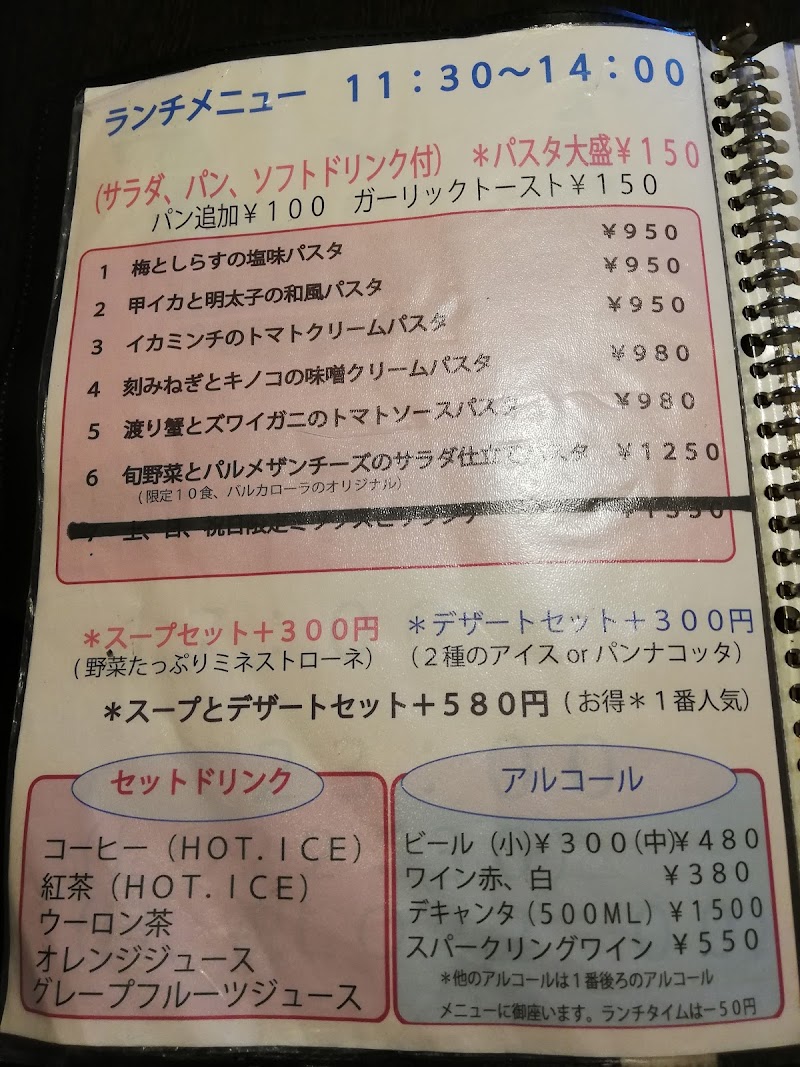 ランチメニュー　11：30〜14：00
(サラダ、パン、ソフトドリンク付)　＊パスタ大盛￥150
パン追加￥100　ガーリックトースト￥150
1　梅としらすの塩味パスタ　￥950
2　甲イカと明太子の和風パスタ　￥950
3　イカミンチのトマトクリームパスタ　￥950
4　刻みねぎとキノコの味噌クリームパスタ　￥980
5　渡り蟹とズワイガニのトマトソースパスタ　￥980
6　旬野菜とパルメザンチーズのサラダ仕立てパスタ　￥1250
（限定10食、バルカローラのオリジナル）
土、日、祝日限定　￥1350
＊スープセット＋300円　＊デザートセット＋300円
(野菜たっぷりミネストローネ)　(2種のアイス or パンナコッタ)
＊スープとデザートセット＋580円（お得＊1番人気）
セットドリンク
コーヒー（HOT.ICE）
紅茶（HOT.ICE）
ウーロン茶
オレンジジュース
グレープフルーツジュース
アルコール
ビール（小)￥300(中)￥480
ワイン赤、白　￥380
デキャンタ（500ML）￥1500
スパークリングワイン　￥550
＊他のアルコールは1番後ろのアルコール
メニューに御座います。ランチタイムは－50円